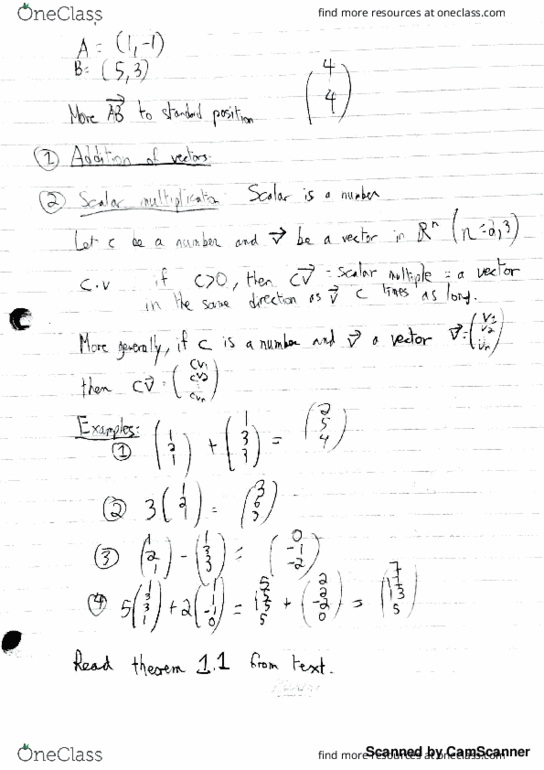 OneClass
find more resources at oneclass.com
A = (1,-1)
B = (5,3)
Move AB to standard position (4 4)
① Addition of vectors.
② Scalar multiplication Scalar is a number
Let c be a number and v be a vector in Rⁿ (n=2,3)
c.v if c>0, then cv = scalar multiple = a vector
in the same direction as v c times as long.
More generally, if c is a number and v a vector v = (v1 v2 vn)
then cv = (cv1 cv2 cvn)
Examples:
① (1 2 1) + (1 3 3) = (2 5 4)
② 3(1 2 1) = (3 6 3)
③ (1 2 1) - (1 3 3) = (0 -1 -2)
④ 5(1 3 3 1) + 2(1 1 -1 0) = + (2 2 -2 0) =
Read theorem 1.1 from text.
OneClass
find more resources at oneclass.com
Scanned by CamScanner